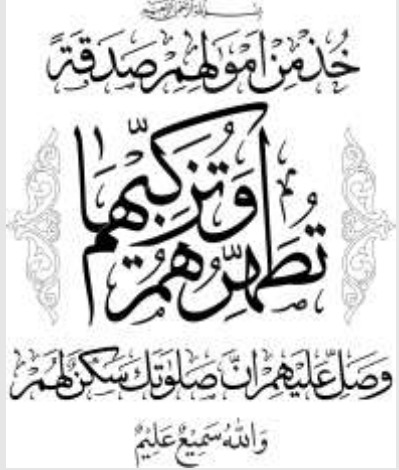 بسم الله الرحمن الرحيم
خُذْ مِنْ اَمْوَالِهِمْ صَدَقَةً
تُطَهِّرُهُمْ وَتُزَكِّيهِمْ بِهَا
وَصَلِّ عَلَيْهِمْ اِنَّ صَلٰوتَكَ سَكَنٌ لَهُمْ
وَاللّٰهُ سَمِيعٌ عَلِيمٌ